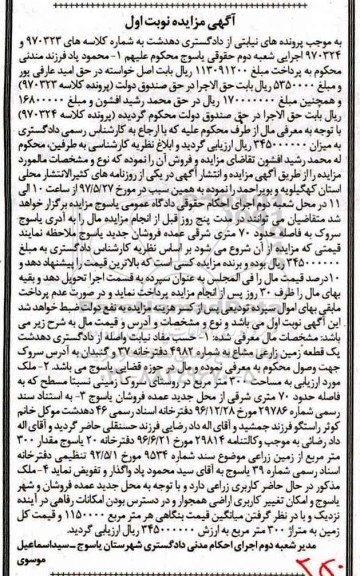 آگهی مزایده نوبت اول
به موجب پرونده های نیابتی از دادگستری دهدشت به شماره کلاسه های ۹۷۰۳۲۳ و
۹۷۰۳۲۴ اجرایی شعبه دوم حقوقی یاسوج محکوم علیهم ۱- محمود یاد فرزند مندنی
محکوم به پرداخت مبلغ ۱۱۳۰۹۱۲۰۰ ریال بابت اصل خواسته در حق امید عارفی پور
و مبلغ ۵۳۵۰۰۰۰ ریال بابت حق الاجرا در حق صندوق دولت (پرونده کلاسه ۹۷۰۳۲۳)
و همچنین مبلغ ۱۷۰۰۰۰۰۰۰ ریال در حق محمد رشید افشون و مبلغ ۱۶۸۰۰۰۰۰
ریال بابت حق الاجرا در حق صندوق دولت محکوم گردیده (پرونده کلاسه ۹۷۰۳۲۴)
با توجه به معرفی مال از طرف محکوم علیه که با ارجاع به کارشناس رسمی دادگستری
به میزان ۳۴۵۰۰۰۰۰۰ ریال ارزیابی گردید و ابلاغ نظریه کارشناسی به طرفین، محکوم
له محمد رشید افشون تقاضای مزایده و فروش آن را نموده که نوع و مشخصات مال مورد
مزایده را از طریق آگهی مزایده و انتشار آگهی در یکی از روزنامه های کثیرالانتشار محلی
استان کهگیلویه و بویراحمد را نموده به همین سبب در مورخ ۹۷/۵/۲۷ از ساعت ۱۰ الی
۱۱ در محل شعبه دوم اجرای احکام حقوقی دادگاه عمومی یاسوج مزایده برگزار خواهد
شد متقاضیان می توانند در مدت پنج روز قبل از انجام مزایده مال را به آدرس یاسوج
سروک به فاصله حدود ۷۰ متری شرقی عمده فروشان جدید یاسوج ملاحظه نمایند
قیمتی که مزایده از آن شروع می شود بر اساس نظریه کارشناس دادگستری به مبلغ
۳۴۵۰۰۰۰۰۰ ریال بوده و برنده مزایده کسی است که بالاترین قیمت را پیشنهاد دهد و
۱۰ درصد قیمت مال را فی المجلس به عنوان سپرده به قسمت اجرا تحویل دهد و بقیه
بهای مال را ظرف ۳۰ روز پس از انجام مزایده پرداخت نماید و در صورت عدم پرداخت
مابقی بهای اموال سپرده تودیعی پس از کسر هزینه مزایده به نفع دولت ضبط خواهد شد
این آگهی نوبت اول می باشد و نوع و مشخصات و آدرس و قیمت مال به شرح زیر می
باشد: مشخصات مال معرفی شده: ۱- حسب مفاد نیابت واصله از دادگستری دهدشت
یک قطعه زمین زراعی مشاع به شماره ۴۹۸۲ دفترخانه ۲۷ و گتبدان به آدرس سروک
جهت وصول محکوم به معرفی نموده و مال در حوزه قضای یاسوج می باشد. ۲- ملک
مورد ارزیابی به مساحت ۳۰۰ متر مربع در روستای سروک زمینی نسبتا مسطح که به
فاصله حدود ۷۰ متری شرقی از محل جدید عمده فروشان یاسوج ۳- به استناد سند
رسمی شماره ۲۹۷۸۶ مورخ ۹۶/۱۲/۲۸ دفترخانه اسناد رسمی ۴۶ دهدشت موکل خانم
کوثر راستگو فرزند جمشید و آقای اله داد رضایی فرزند حسنقلی حاضر گردید و آقای اله
داد رضائی به موجب وکالتنامه ۲۹۸۱۴ مورخ ۹۶/۶/۲۱ دفترخانه ۲۰ یاسوج مقدار ۳۰۰
متر مربع از زمین زراعی موضوع سند شماره ۹۵۳۴ مورخ ۹۲/۵/۱ تنظیمی دفترخانه
اسناد رسمی شماره ۳۹ یاسوج به آقای سید محمود پاد واگذار و تفویض نماید ۴- ملک
مذکور در حال حاضر کاربری زراعی دارد و با توجه به محل جدید عمده فروشان و شهر
یاسوج و امکان تغییر کاربری اراضی همجوار و در دسترس بودن امکانات رفاهی در آینده
نزدیک و با در نظر گرفتن میانگین قیمت بنگاهی هر متر مربع ۱۱۵۰۰۰۰ و قیمت کل
زمین به متراژ ۳۰۰ متر مربع به ارزش ۳۴۵۰۰۰۰۰۰ ریال ارزیابی گردید.
مدیر شعبه دوم اجرای احکام مدنی دادگستری شهرستان یاسوج – سیداسماعیل
موسوی